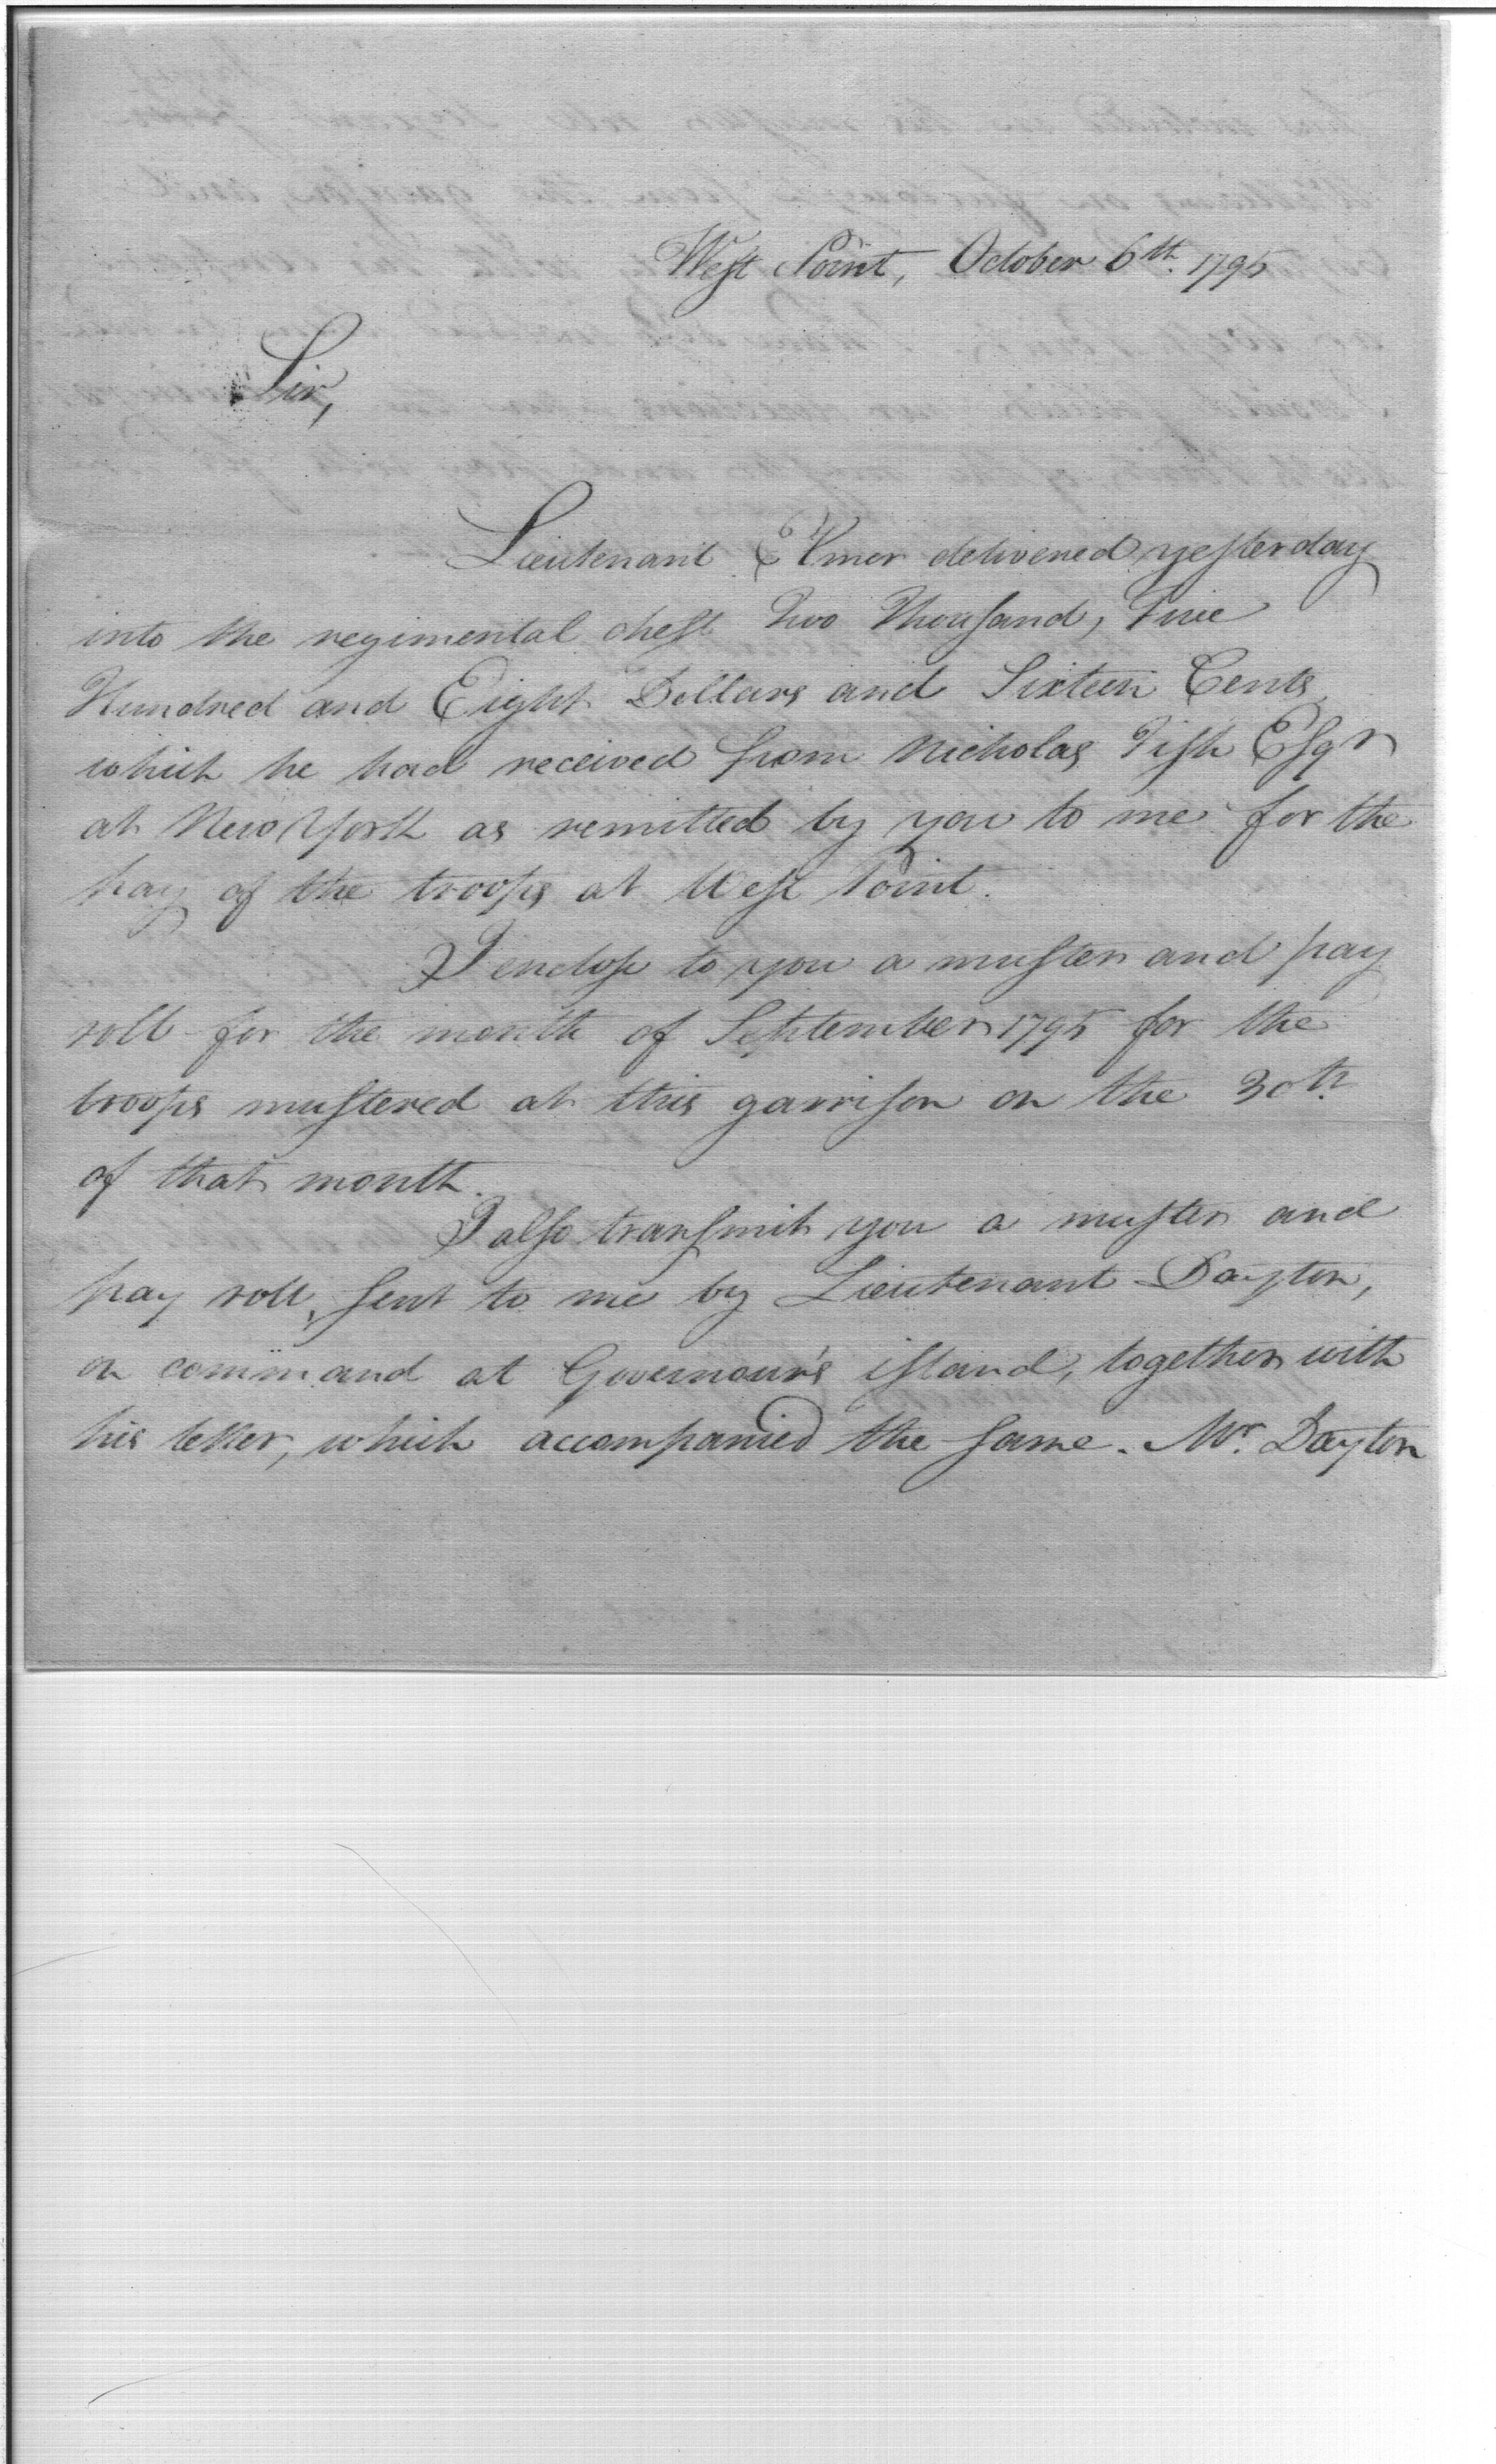 West Point, October 6th. 1795
Sir,
Lieutenant Elmer delivered yesterday
into the regimental chest Two Thousand, Five
Hundred and Eight Dollars and Sixteen Cents,
which he had received from Nicholas Fish Esqr
at New York as remitted by you to me for the
pay of the troops at West Point.
I enclose to you a muster and pay
roll for the month of September 1795 for the
troops mustered at this garrison on the 30th.
of that month.
I also transmit you a muster and
pay roll, sent to me by Lieutenant Dayton,
on command at Governour's island, together with
his letter, which accompanied the same. Mr. Dayton